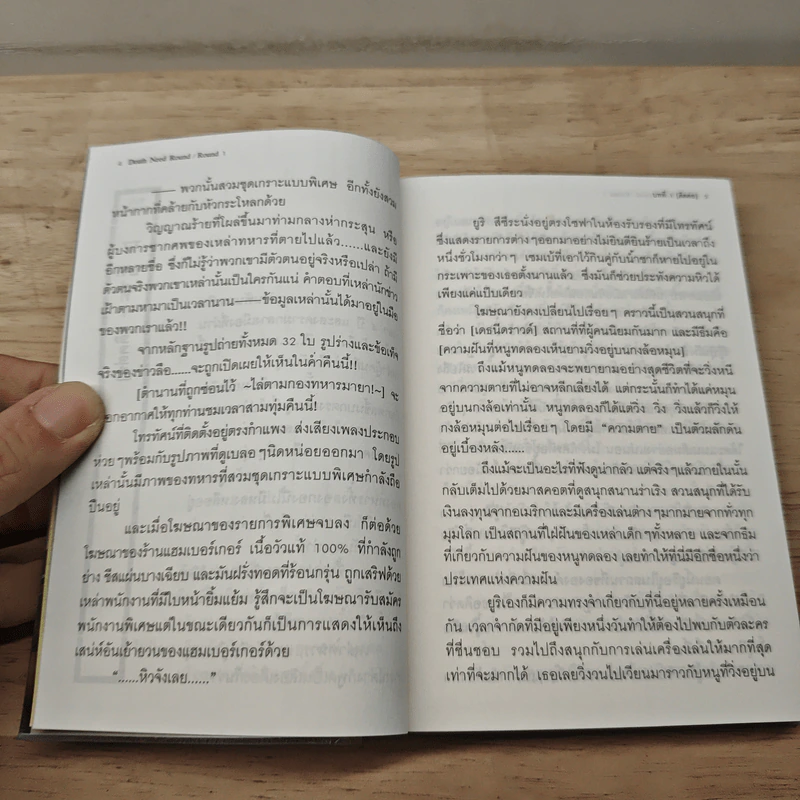 Death Need Round / Round 1
—— พวกนั้นสวมชุดเกราะแบบพิเศษ อีกทั้งยังสวม
หน้ากากที่คล้ายกับหัวกระโหลกด้วย
วิญญาณร้ายที่โผล่ขึ้นมาท่ามกลางห่ากระสุน หรือ
ผู้บงการซากศพของเหล่าทหารที่ตายไปแล้ว......และยังมี
อีกหลายชื่อ ซึ่งก็ไม่รู้ว่าพวกเขามีตัวตนอยู่จริงหรือเปล่า ถ้ามี
ตัวตนจริงพวกเขาเหล่านั้นเป็นใครกันแน่ คำตอบที่เหล่านักข่าว
เฝ้าตามหามาเป็นเวลานาน——ข้อมูลเหล่านั้นได้มาอยู่ในมือ
ของพวกเราแล้ว!!
จากหลักฐานรูปถ่ายทั้งหมด 32 ใบ รูปร่างและข้อเท็จ
จริงของข่าวลือ......จะถูกเปิดเผยให้เห็นในค่ำคืนนี้!!
[ตำนานที่ถูกซ่อนไว้ ~ไล่ตามกองทหารมายา!~] จะ
ออกอากาศให้ทุกท่านชมเวลาสามทุ่มคืนนี้!
โทรทัศน์ที่ติดตั้งอยู่ตรงกำแพง ส่งเสียงเพลงประกอบ
ห่วยๆพร้อมกับรูปภาพที่ดูเบลอๆนิดหน่อยออกมา โดยรูป
เหล่านั้นมีภาพของทหารที่สวมชุดเกราะแบบพิเศษกำลังถือ
ปืนอยู่
และเมื่อโฆษณาของรายการพิเศษจบลง ก็ต่อด้วย
โฆษณาของร้านแฮมเบอร์เกอร์ เนื้อวัวแท้ 100% ที่กำลังถูก
ย่าง ชีสแผ่นบางเฉียบ และมันฝรั่งทอดที่ร้อนกรุ่น ถูกเสริฟด้วย
เหล่าพนักงานที่มีใบหน้ายิ้มแย้ม รู้สึกจะเป็นโฆษณารับสมัคร
พนักงานพิเศษแต่ในขณะเดียวกันก็เป็นการแสดงให้เห็นถึง
เสน่ห์อันเย้ายวนของแฮมเบอร์เกอร์ด้วย
"......หิวจังเลย......"
บทที่ 1
ยูริ สีซีระนั่งอยู่ตรงโซฟาในห้องรับรองที่มีโทรทัศน์
ซึ่งแสดงรายการต่างๆออกมาอย่างไม่ยินดียินร้ายเป็นเวลาถึง
หนึ่งชั่วโมงกว่าๆ เซมเบ้ที่เอาไว้กินคู่กับน้ำชาก็หายไปอยู่ใน
กระเพาะของเธอตั้งนานแล้ว ซึ่งมันก็ช่วยประทังความหิวได้
เพียงแค่แป๊บเดียว
โฆษณายังคงเปลี่ยนไปเรื่อยๆ คราวนี้เป็นสวนสนุกที่
ชื่อว่า [เดธนีดราวด์] สถานที่ที่ผู้คนนิยมกันมาก และมีธีมคือ
[ความฝันที่หนูทดลองเห็นยามวิ่งอยู่บนกงล้อหมุน]
ถึงแม้หนูทดลองจะพยายามอย่างสุดชีวิตที่จะวิ่งหนี
จากความตายที่ไม่อาจหลีกเลี่ยงได้ แต่กระนั้นก็ทำได้แค่หมุน
อยู่บนกงล้อเท่านั้น หนูทดลองก็ได้แต่วิ่ง วิ่ง วิ่งแล้วก็วิ่งให้
กงล้อหมุนต่อไปเรื่อยๆ โดยมี "ความตาย" เป็นตัวผลักดัน
อยู่เบื้องหลัง......
ถึงแม้จะเป็นอะไรที่ฟังดูน่ากลัว แต่จริงๆแล้วภายในนั้น
กลับเต็มไปด้วยมาสคอตที่ดูสนุกสนานร่าเริง สวนสนุกที่ได้รับ
เงินลงทุนจากอเมริกาและมีเครื่องเล่นต่างๆมากมายจากทั่วทุก
มุมโลก เป็นสถานที่ใฝ่ฝันของเหล่าเด็กๆทั้งหลาย และจากธีม
ที่เกี่ยวกับความฝันของหนูทดลอง เลยทำให้ที่นี่มีอีกชื่อหนึ่งว่า
ประเทศแห่งความฝัน
ยูริเองก็มีความทรงจำเกี่ยวกับที่นี่อยู่หลายครั้งเหมือน
กัน เวลาจำกัดที่มีอยู่เพียงหนึ่งวันทำให้ต้องไปพบกับตัวละคร
ที่ชื่นชอบ รวมไปถึงสนุกกับการเล่นเครื่องเล่นให้มากที่สุด
เท่าที่จะมากได้ เธอเลยวิ่งวนไปเวียนมาราวกับหนูที่วิ่งอยู่บน